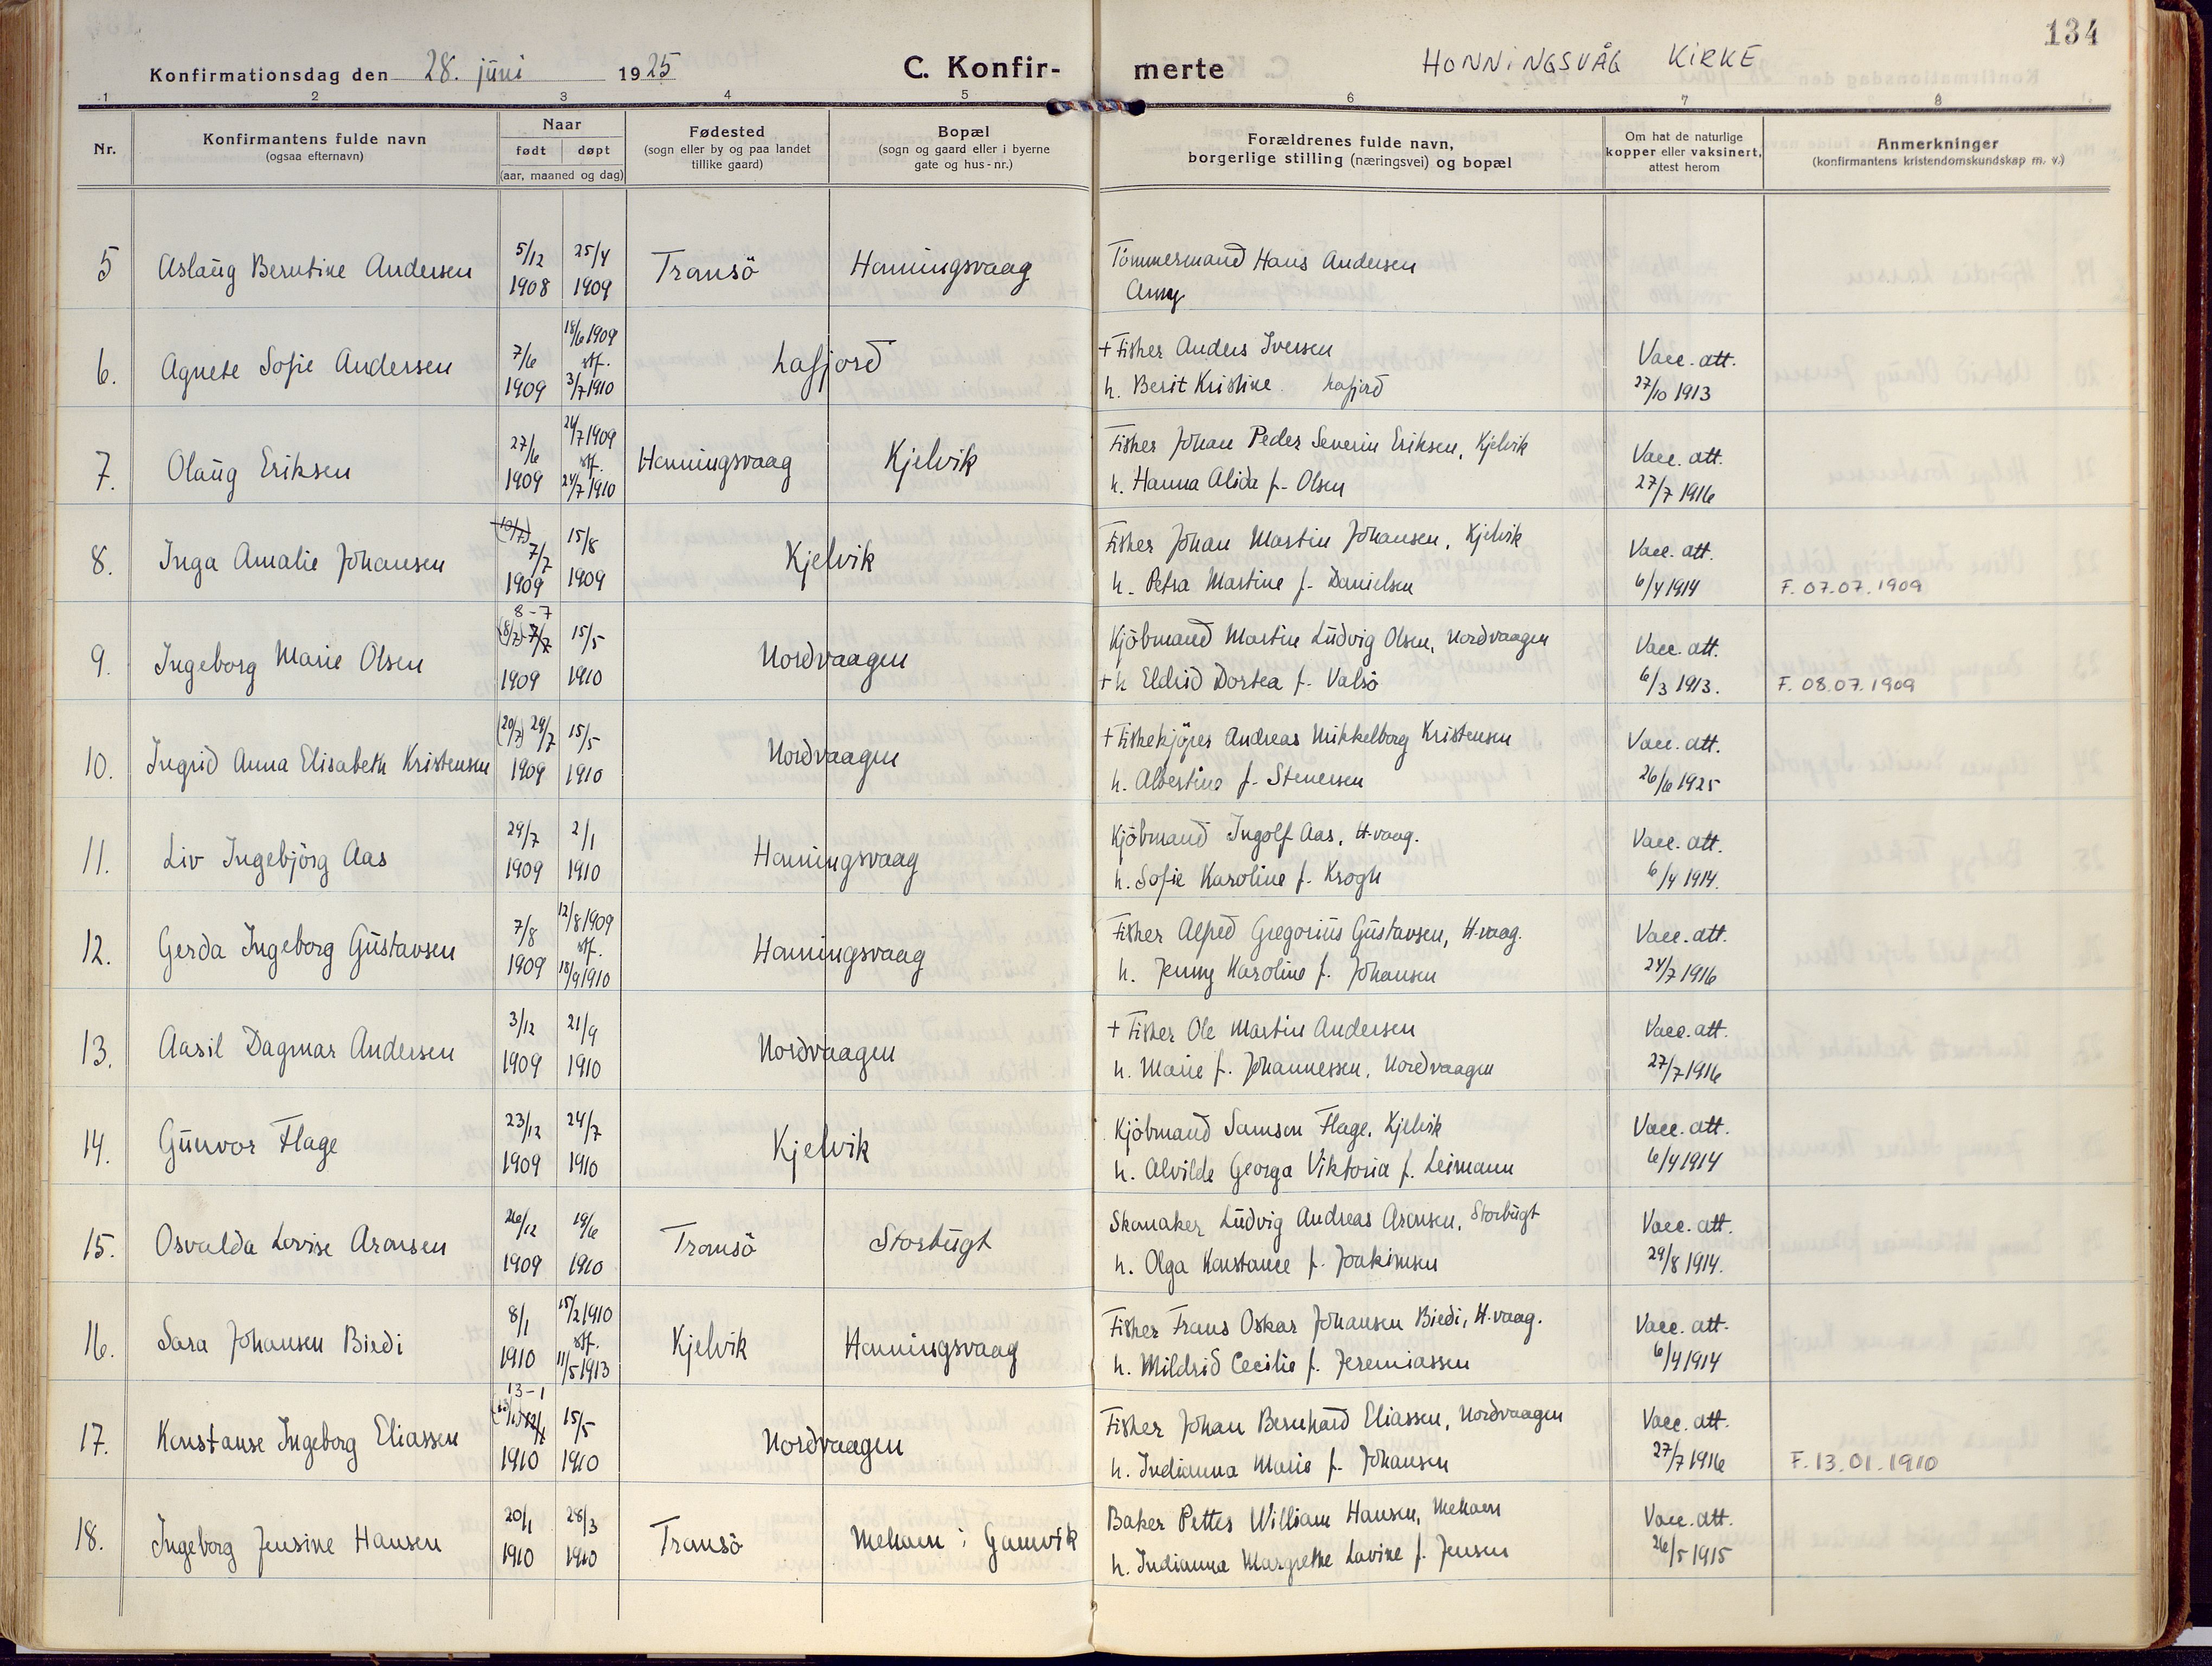 134
Konfirmationsdag den 28. juni 1925
C. Konfir-merte
HONNINGSVÅG KIRKE
1 2 3 4 5 6 7 8
Nr.
Konfirmantens fulde navn
(ogsaa efternavn)
Naar
født døpt
(aar, maaned og dag)
Fødested
(sogn eller by og paa landet
tillike gaard)
Bopæl
(sogn og gaard eller i byerne
gate og hus-nr.)
Forældrenes fulde navn,
borgerlige stilling (næringsvei) og bopæl
Om hat de naturlige
kopper eller vaksinert,
attest herom
Anmerkninger
(konfirmantens kristendomskundskap m. v.)
5 Aslaug Berntine Andersen 5/12 1908 25/4 1909 Tromsö Honningsvaag
Tömmermand Hans Andersen
Anny
6. Agnete Sofie Andersen 7/6 1909 18/6 1909 stf. 3/7 1910 Lafjord
+ Fisker Anders Iversen
h. Berit Kristine. Lafjord
Vacc. att.
27/10 1913
7. Olaug Eriksen 27/6 1909 24/7 1909 stf. 24/7 1910 Honningsvaag Kjelvik
Fisker Johan Peder Severin Eriksen, Kjelvik
h. Hanna Alida f. Olsen
Vacc. att.
27/7 1916
8. Inga Amalie Johansen (10/7) 7/7 1909 15/8 1909 Kjelvik
Fisker Johan Martin Johansen, Kjelvik
h. Petra Martine f. Danielsen
Vacc. att.
6/4 1914
F. 07.07.1909
9. Ingeborg Marie Olsen 8-7 (8/7) 7/7 1909 15/5 1910 Nordvaagen
Kjöbmand Martin Ludvig Olsen, Nordvaagen
+ h Eldrid Dortea f. Valsö
Vacc. att.
6/3 1913.
F. 08.07.1909
10. Ingrid Anna Elisabeth Kristensen (20/7) 29/7 1909 15/5 1910 Nordvaagen
+ Fiskekjöper Andreas Mikkelborg Kristensen
h. Albertine f. Stenersen
Vacc. att.
26/6 1925
11. Liv Ingebjörg Aas 29/7 1909 2/1 1910 Honningsvaag
Kjöbmand Ingolf Aas, H.vaag.
h. Sofie Karoline f. Krogh
Vacc. att.
6/4 1914.
12. Gerda Ingeborg Gustavsen 7/8 1909 12/8 1909 stf. 18/9 1910 Honningsvaag
Fisker Alfred Gregorius Gustavsen, H.vaag.
h. Jenny Karoline f. Johansen
Vacc. att.
24/7 1916
13. Aasil Dagmar Andersen 3/12 1909 21/9 1910 Nordvaagen
+ Fisker Ole Martin Andersen
h. Marie f. Johannessen, Nordvaagen
Vacc. att.
27/7 1916
14. Gunvor Flage 23/12 1909 24/7 1910 Kjelvik
Kjöbmand Samson Flage, Kjelvik
h. Alvilde Georga Viktoria f. Leimann
Vacc. att.
6/4 1914
15. Osvalda Lovise Aronsen 26/12 1909 19/6 1910 Tromsö Storbugt
Skomaker Ludvig Andreas Aronsen, Storbugt
h. Olga Konstance f. Joakimsen
Vacc. att.
29/8 1914.
16. Sara Johansen Biedi 8/1 1910 15/2 1910 stf. 11/5 1913 Kjelvik Honningsvaag
Fisker Frans Oskar Johansen Biedi, H.vaag.
h. Mildrid Cecilie f. Jeremiassen
Vacc. att.
6/4 1914
17. Konstanse Ingeborg Eliassen 13-1 1910 15/5 1910 Nordvaagen
Fisker Johan Bernhard Eliassen, Nordvaagen
h. Indianna Marie f. Johansen
Vacc. att.
27/7 1916
F. 13.01.1910
18. Ingeborg Jensine Hansen 20/1 1910 28/3 1910 Tromsö Mehavn i Gamvik
Baker Petter William Hansen, Mehavn
h. Indianna Margrethe Lavine f. Jensen
Vacc. att.
26/5 1915